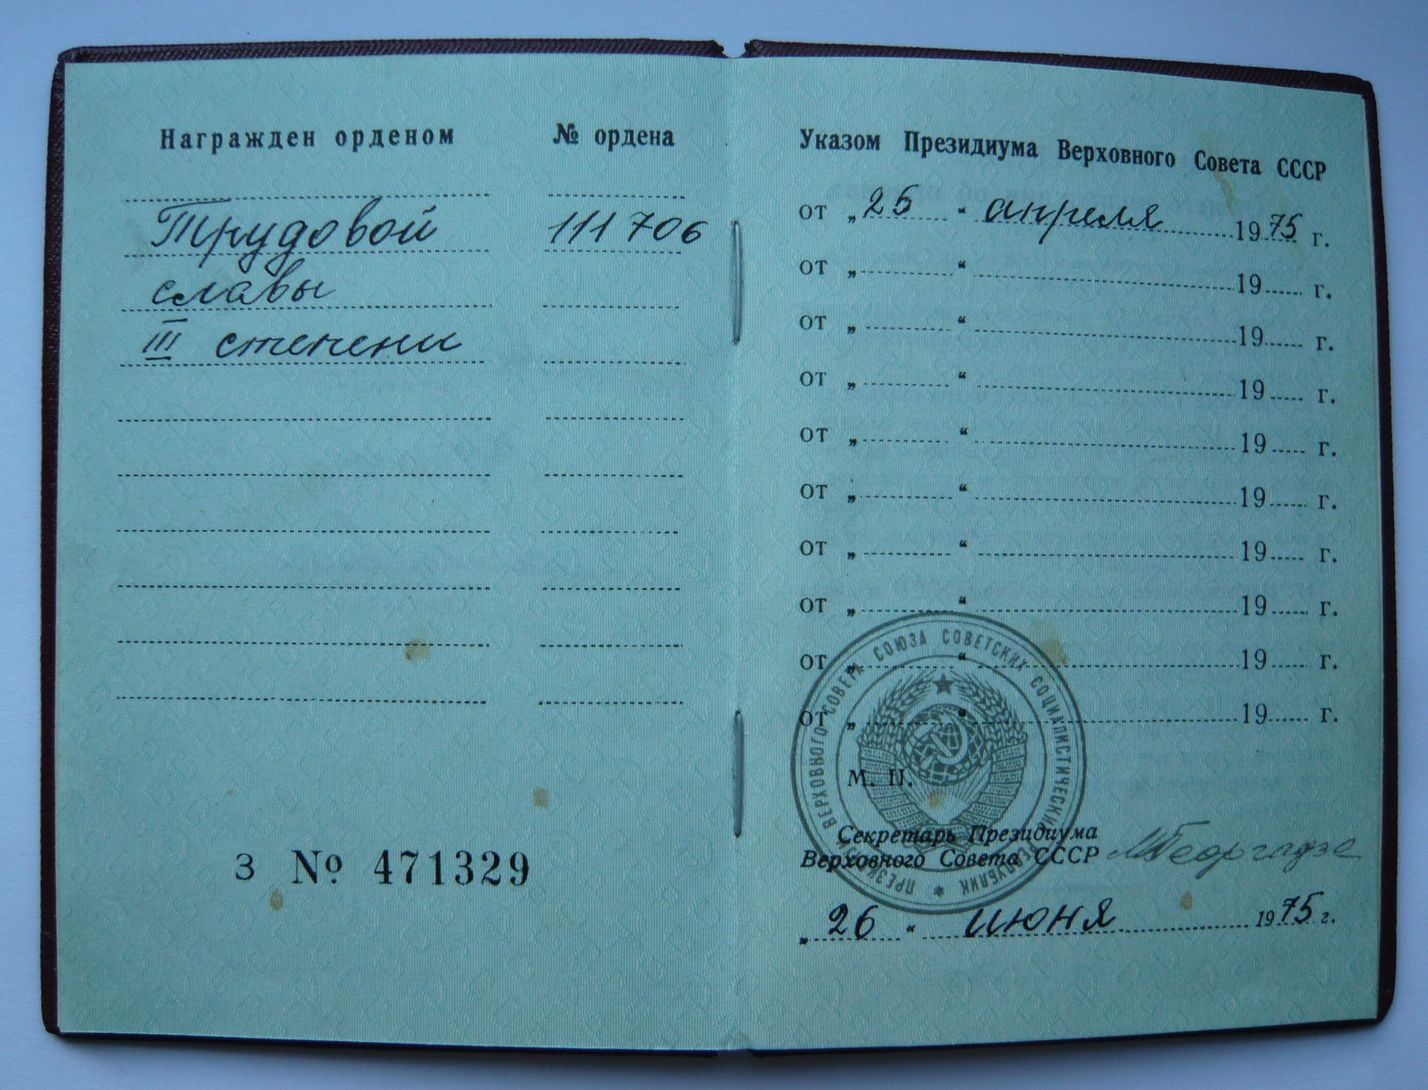 Награжден орденом № ордена
Трудовой 111706
славы
III степени
З № 471329
Указом Президиума Верховного Совета СССР
от „25“ апреля 1975 г.
от „ “ 19 г.
от „ “ 19 г.
от „ “ 19 г.
от „ “ 19 г.
от „ “ 19 г.
от „ “ 19 г.
от „ “ 19 г.
от „ “ 19 г.
от „ “ 19 г.
ПРЕЗИДИУМ ВЕРХОВНОГО СОВЕТА СОЮЗА СОВЕТСКИХ СОЦИАЛИСТИЧЕСКИХ РЕСПУБЛИК
М. П.
Секретарь Президиума
Верховного Совета СССР М Георгадзе
„26“ июня 1975 г.